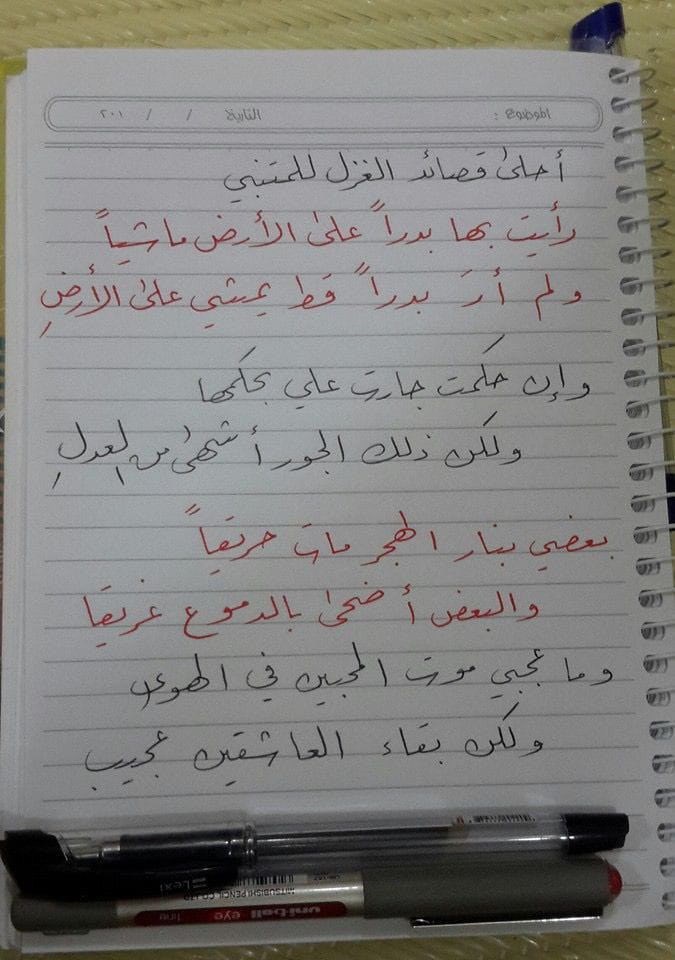 الموضوع :
التاريخ / / ٢٠١
أحلى قصائد الغزل للمتنبي
رأيت بها بدراً على الأرض ماشياً
ولم أرَ بدراً قط يمشي على الأرضِ
وإن حكمت جارت علي بحكمها
ولكن ذلك الجور أشهى من العدلِ
بعضي بنار الهجر مات حريقاً
والبعض أضحى بالدموع غريقا
وما عجبي موت المحبين في الهوى
ولكن بقاء العاشقين عجيب
Lexi
MITSUBISHI PENCIL CO.LTD
uni-ball eye
fine